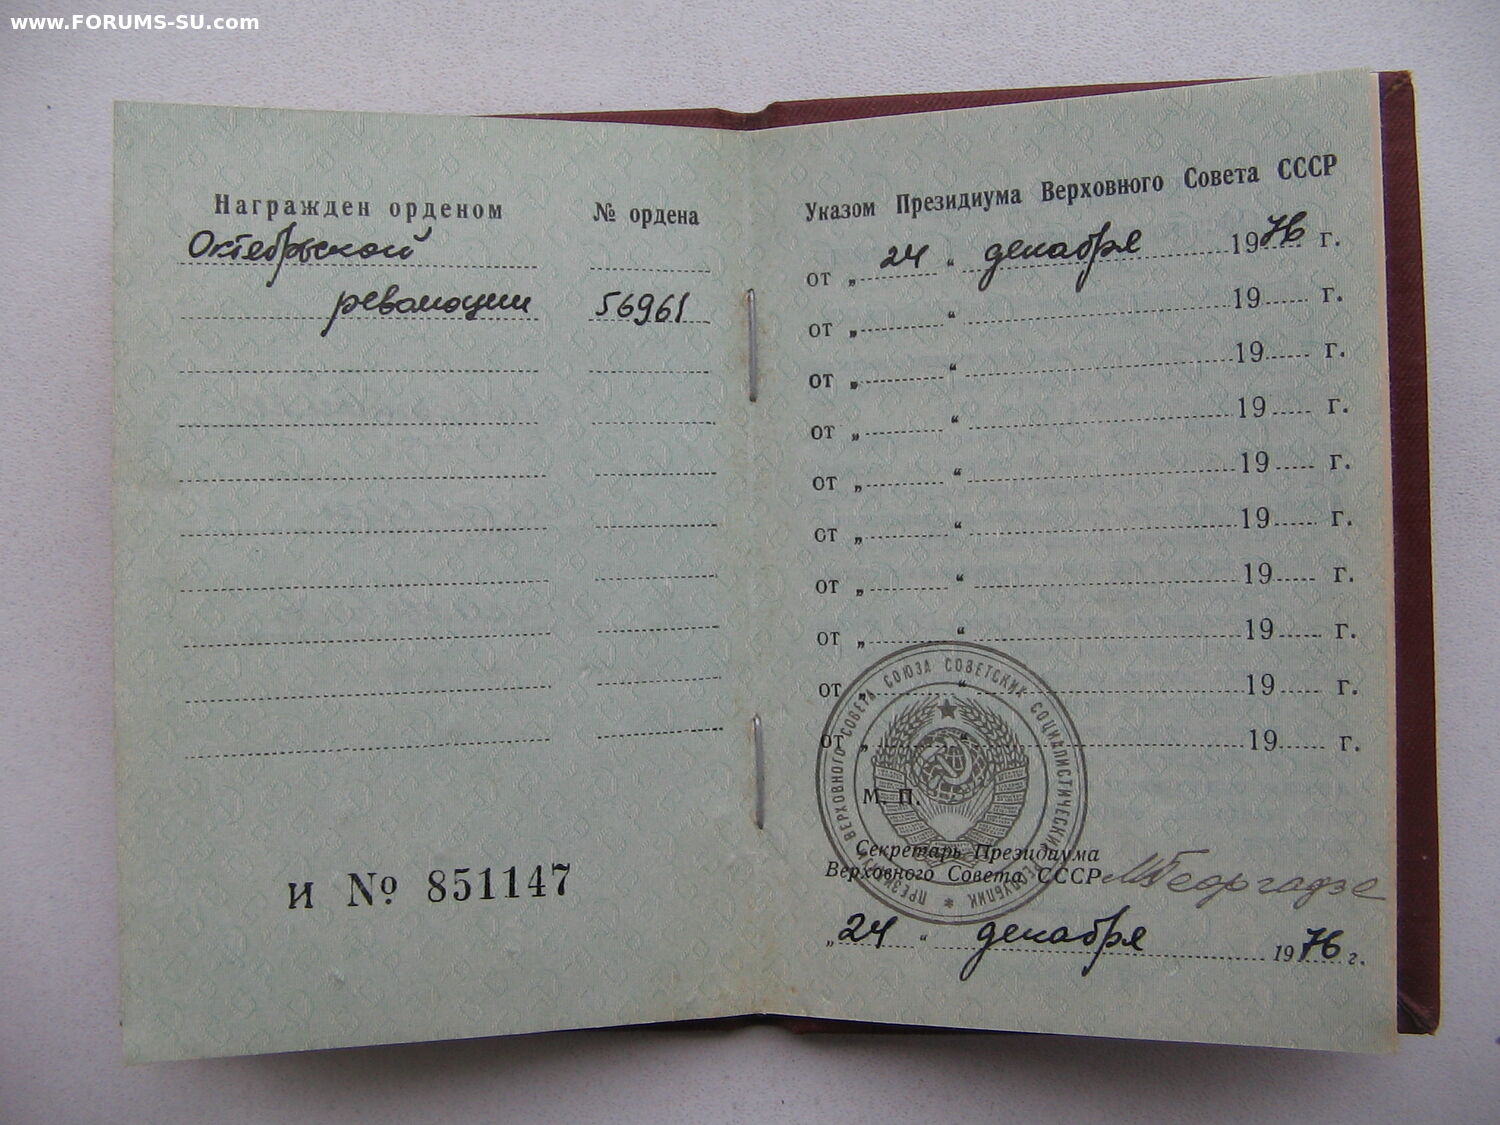 www.FORUMS-SU.com
Награжден орденом № ордена
Октябрьской
революции 56961
И № 851147
Указом Президиума Верховного Совета СССР
от „ 24 “ декабря 1976 г.
от „ “ 19 г.
от „ “ 19 г.
от „ “ 19 г.
от „ “ 19 г.
от „ “ 19 г.
от „ “ 19 г.
от „ “ 19 г.
от „ “ 19 г.
от „ “ 19 г.
ПРЕЗИДИУМ ВЕРХОВНОГО СОВЕТА СОЮЗА СОВЕТСКИХ СОЦИАЛИСТИЧЕСКИХ РЕСПУБЛИК *
М. П.
Секретарь Президиума
Верховного Совета СССР МГеоргадзе
„24“ декабря 1976 г.